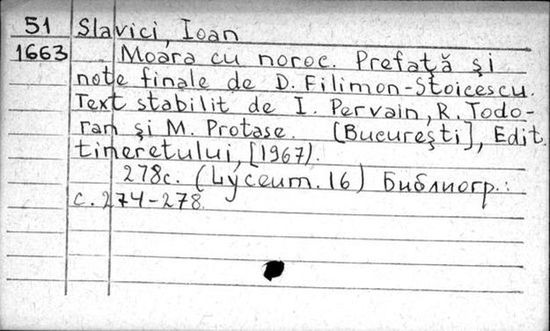 51 Slavici, Ioan
1663 Moara cu noroc. Prefaţă şi
note finale de D. Filimon-Stoicescu.
Text stabilit de I. Pervain, R. Todo-
ran şi M. Protase. [Bucureşti], Edit.
tineretului, [1967].
278c. (Lyceum. 16) Библиогр.:
c. 274-278.